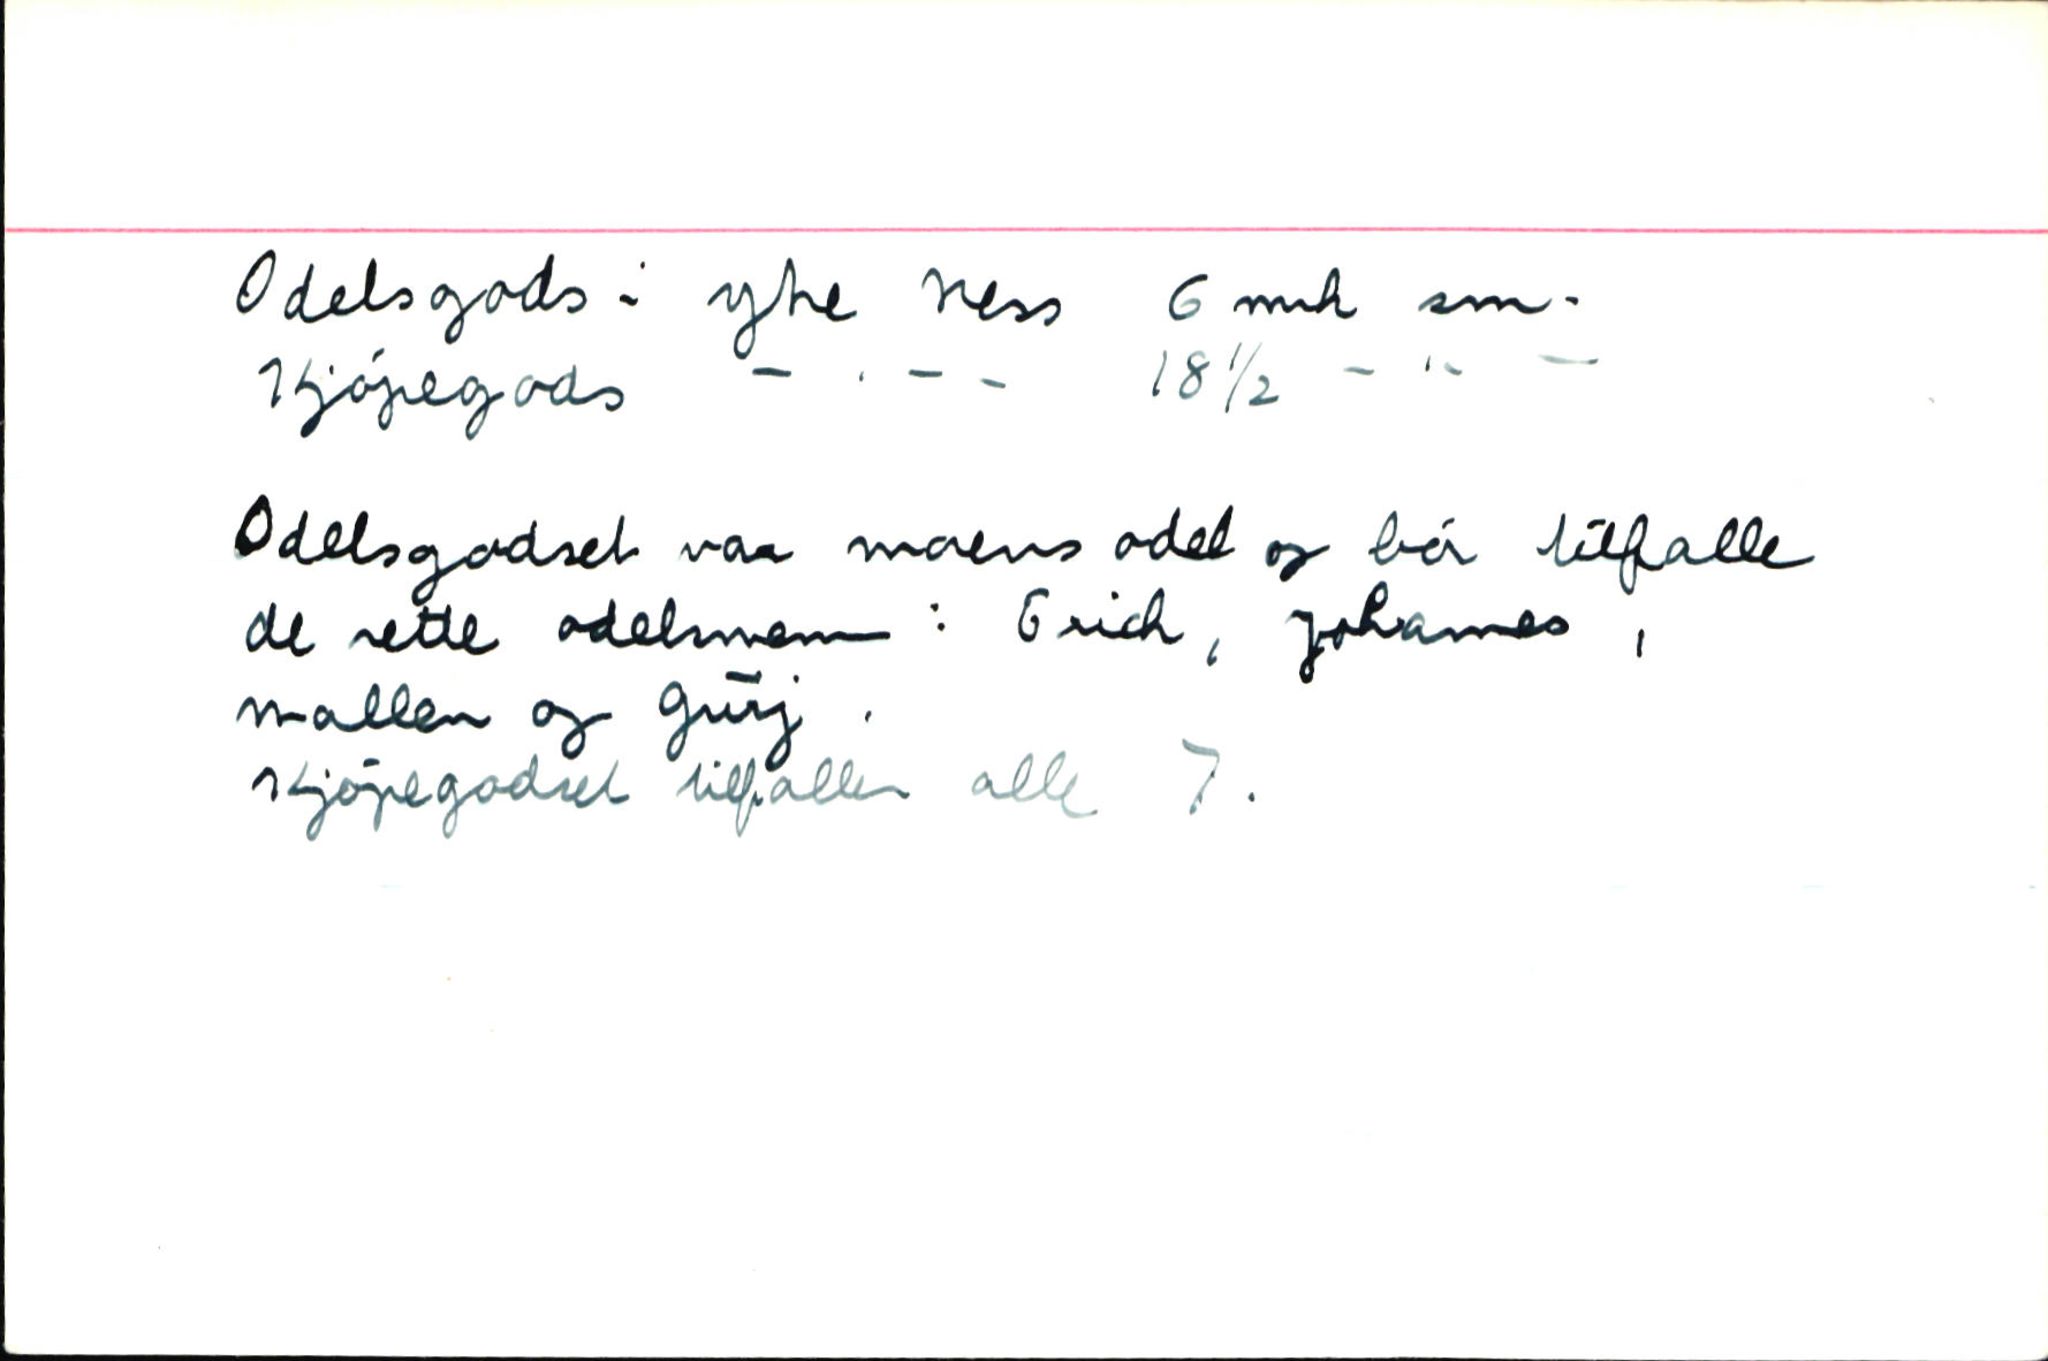 Odelsgods i ytre Ness 6 mrk sm.
Kjópegods - . - - 18 1/2 - " - -
Odelsgodset var morens odel og bór tilfalle
de rette odelsmenn : Erich, Johannes,
Mallen og Gurj.
Kjópegodset tilfaller alle 7.